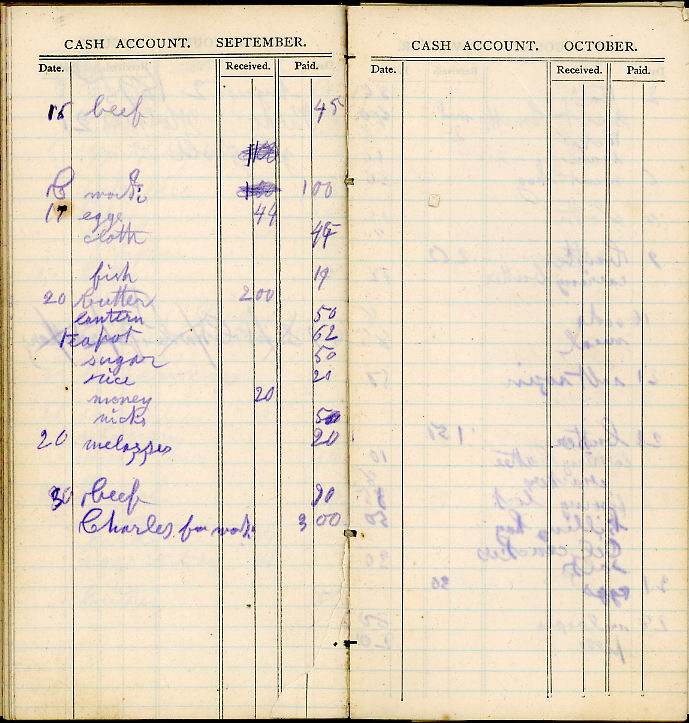 CASH ACCOUNT. SEPTEMBER.
Date. Received. Paid.
15 beef 45
16 work 100
17 eggs 44
cloth 45
fish 19
20 butter 200
lantern 50
teapot 62
sugar 50
rice 20
money 20
nicks 50
20 melasses 20
30 beef 90
Charles for work 3 00
CASH ACCOUNT. OCTOBER.
Date. Received. Paid.